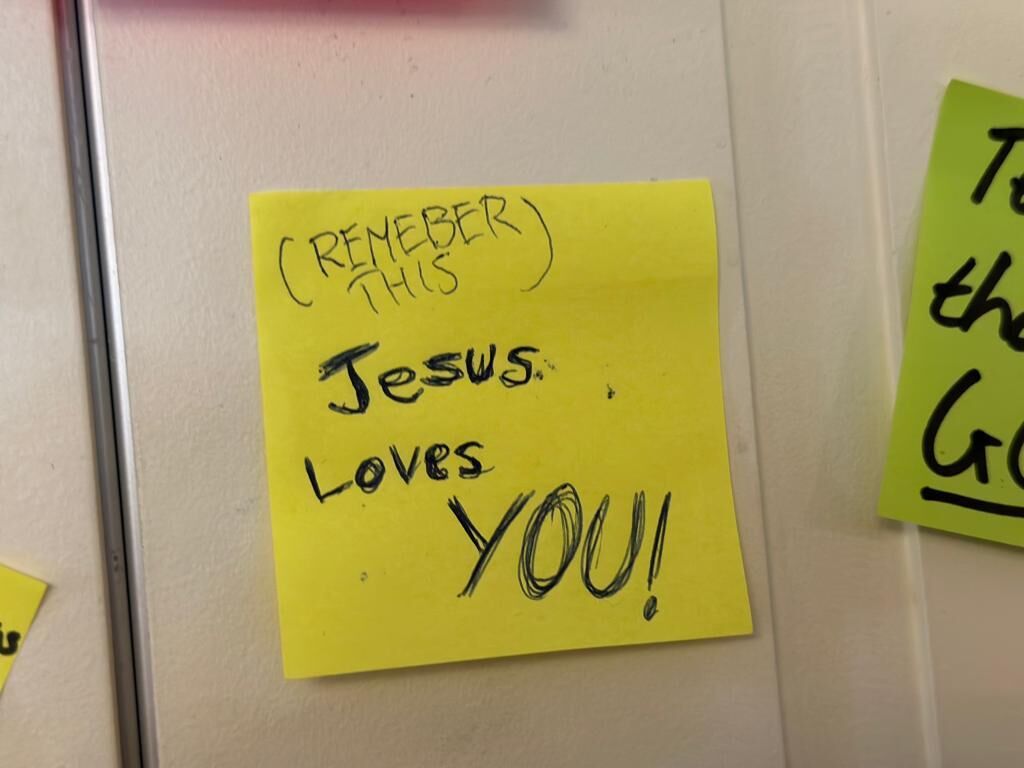 (REMEBER
THIS)
Jesus
Loves
YOU!
the